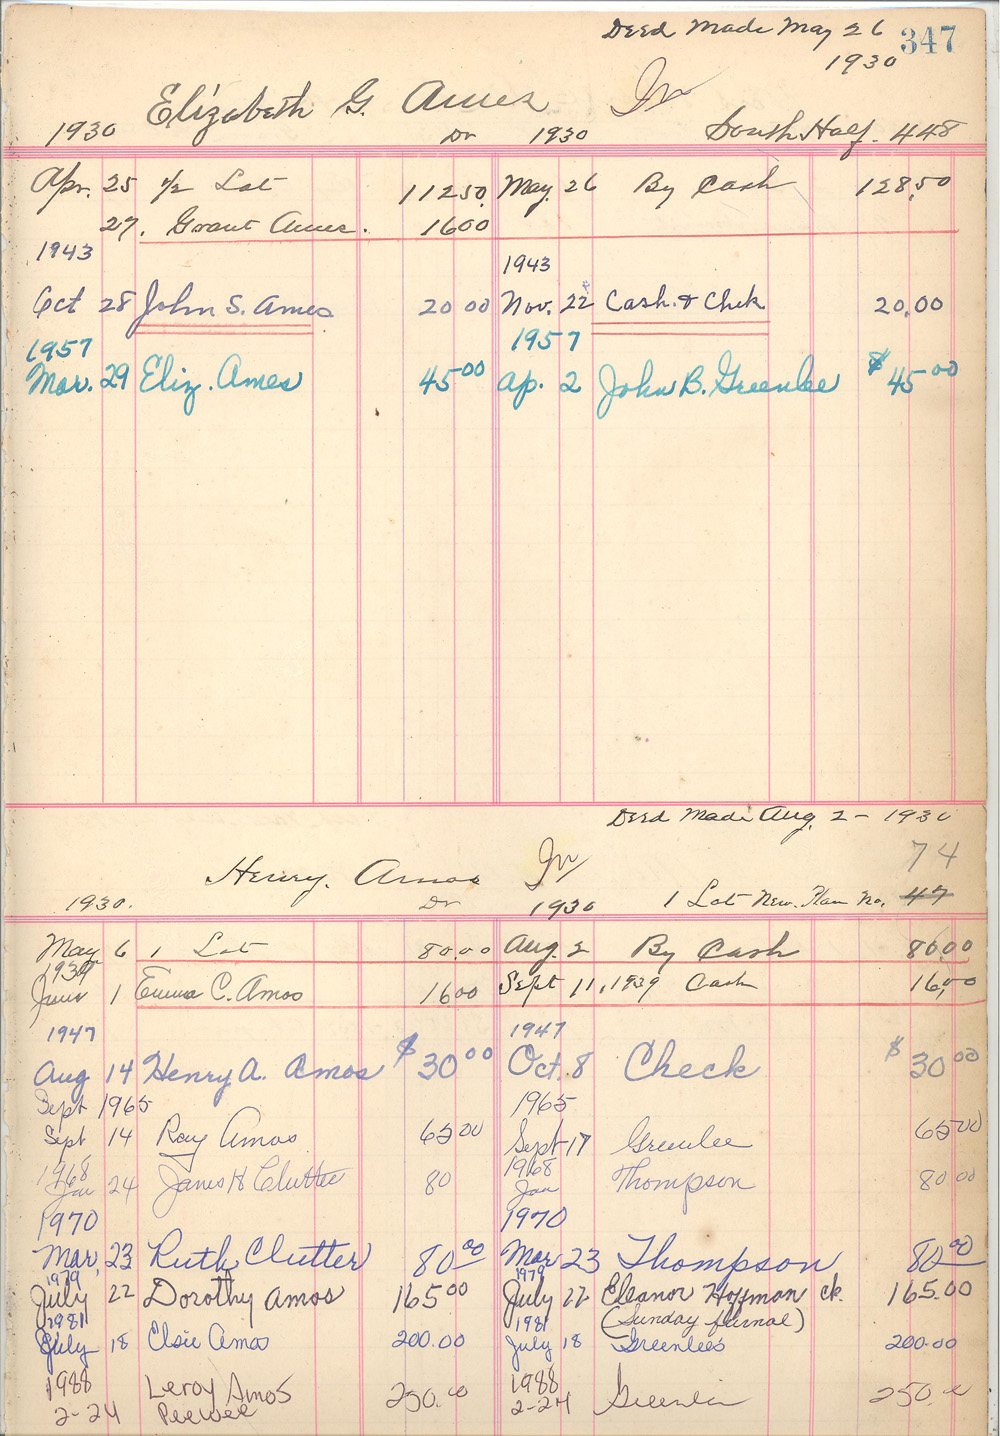 Deed Made May 26 347
1930
Elizabeth G. Ames In
1930 Dr 1930 South Half. 448
Apr. 25 1/2 Lot 112.50 May. 26 By Cash 128.50
27. Grant Ames. 16 00
1943 1943
Oct 28 John S. Ames 20 00 Nov. 22 Cash. & Chek 20.00
1957 1957
Mar. 29 Eliz. Ames 45 00 Ap. 2 John B. Greenlee $ 45 00
Deed Made Aug. 2 - 1930
74
Henry. Amos In
1930. Dr 1930 1 Lot New. Plan No. 47
May 6 1 Lot 80.00 Aug. 2 By Cash 80.00
1939
June 1 Emma C. Amos 16 00 Sept 11, 1939 Cash 16.00
1947 1947
Aug 14 Henry A. Amos $ 30 00 Oct. 8 Check $ 30 00
Sept 1965 1965
Sept 14 Ray Amos 65 00 Sept 17 Greenlee 65 00
1968 1968
Jan 24 James H Clutter 80 Jan Thompson 80 00
1970 1970
Mar, 23 Ruth Clutter 80 00 Mar 23 Thompson 80 00
1979 1979
July 22 Dorothy Amos 165 00 July 22 Eleanor Hoffman ck. 165.00
1981 1981 (Sunday funeral)
July 18 Elsie Amos 200.00 July 18 Greenlee's 200.00
1988 Leroy Amos 250.00 1988 Greenlee 250.00
2-24 Peewee 2-24